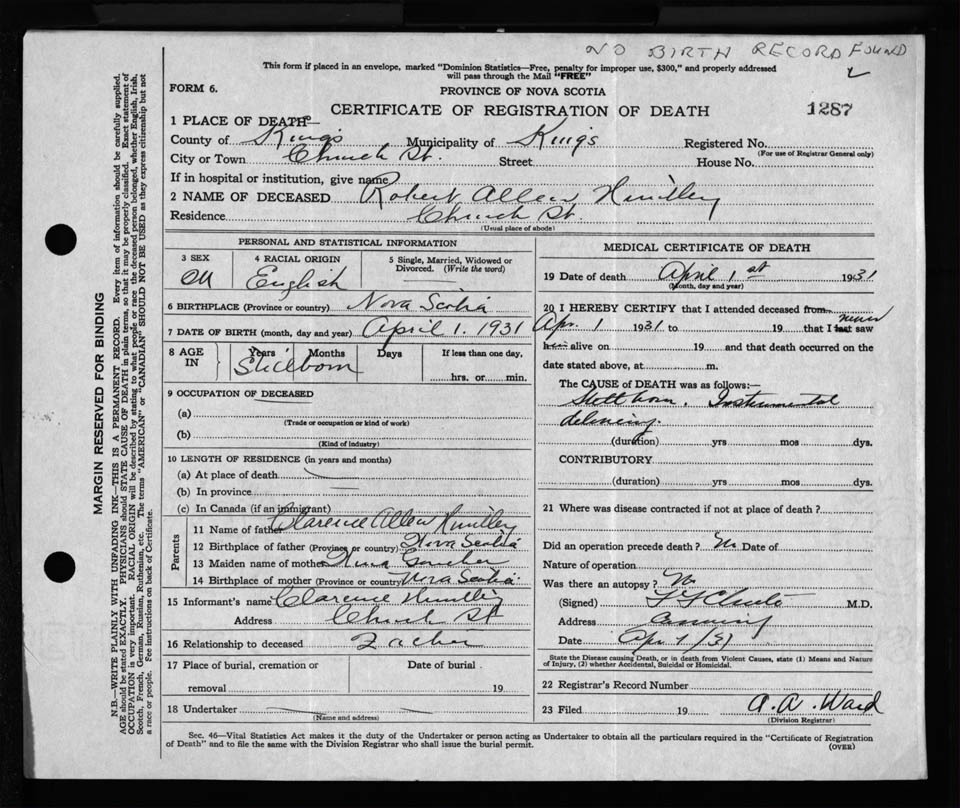 NO BIRTH RECORD FOUND
This form if placed in an envelope, marked "Dominion Statistics—Free, penalty for improper use, $300," and properly addressed
will pass through the Mail "FREE"
FORM 6.
PROVINCE OF NOVA SCOTIA
CERTIFICATE OF REGISTRATION OF DEATH
1287
1 PLACE OF DEATH—
County of King's Municipality of King's Registered No.
(For use of Registrar General only)
City or Town Church St. Street House No.
If in hospital or institution, give name
2 NAME OF DECEASED Robert Allen Huntley
Residence Church St.
(Usual place of abode)
PERSONAL AND STATISTICAL INFORMATION
3 SEX 4 RACIAL ORIGIN 5 Single, Married, Widowed or
Divorced. (Write the word)
M English
6 BIRTHPLACE (Province or country) Nova Scotia
7 DATE OF BIRTH (month, day and year) April 1. 1931
8 AGE
IN
Years Months Days If less than one day,
Stillborn
hrs. or min.
9 OCCUPATION OF DECEASED
(a)
(Trade or occupation or kind of work)
(b)
(Kind of industry)
10 LENGTH OF RESIDENCE (in years and months)
(a) At place of death
(b) In province
(c) In Canada (if an immigrant)
Parents
11 Name of father Clarence Allen Huntley
12 Birthplace of father (Province or country) Nova Scotia
13 Maiden name of mother
14 Birthplace of mother (Province or country) Nova Scotia
15 Informant's name Clarence Huntley
Address Church St
16 Relationship to deceased Father
17 Place of burial, cremation or Date of burial
removal 19
18 Undertaker
(Name and address)
MEDICAL CERTIFICATE OF DEATH
19 Date of death April 1st 1931
(Month, day and year)
20 I HEREBY CERTIFY that I attended deceased from
Apr. 1 1931 to 19 that I last never saw
h alive on 19 and that death occurred on the
date stated above, at m.
The CAUSE OF DEATH was as follows:—
Still born. Instrumental
delivery.
(duration) yrs mos dys.
CONTRIBUTORY
(duration) yrs mos dys.
21 Where was disease contracted if not at place of death?
Did an operation precede death? No Date of
Nature of operation
Was there an autopsy? No
(Signed) M.D.
Address Canning
Date Apr 1/31
State the Disease causing Death, or in death from Violent Causes, state (1) Means and Nature
of Injury, (2) whether Accidental, Suicidal or Homicidal.
22 Registrar's Record Number
23 Filed 19 A. A. Ward
(Division Registrar)
Sec. 46—Vital Statistics Act makes it the duty of the Undertaker or person acting as Undertaker to obtain all the particulars required in the "Certificate of Registration
of Death" and to file the same with the Division Registrar who shall issue the burial permit.
(OVER)
MARGIN RESERVED FOR BINDING
N.B.—WRITE PLAINLY WITH UNFADING INK—THIS IS A PERMANENT RECORD. Every item of information should be carefully supplied.
AGE should be stated EXACTLY. PHYSICIANS should STATE CAUSE OF DEATH in plain terms, so that it may be properly classified. Exact statement of
OCCUPATION is very important. RACIAL ORIGIN will be described by stating to what people or race the deceased person belonged, whether English, Irish,
Scotch, French, German, Russian, Ruthenian, etc. The terms "AMERICAN" or "CANADIAN" SHOULD NOT BE USED as they express citizenship but not
a race or people. Fee instructions on back of Certificate.